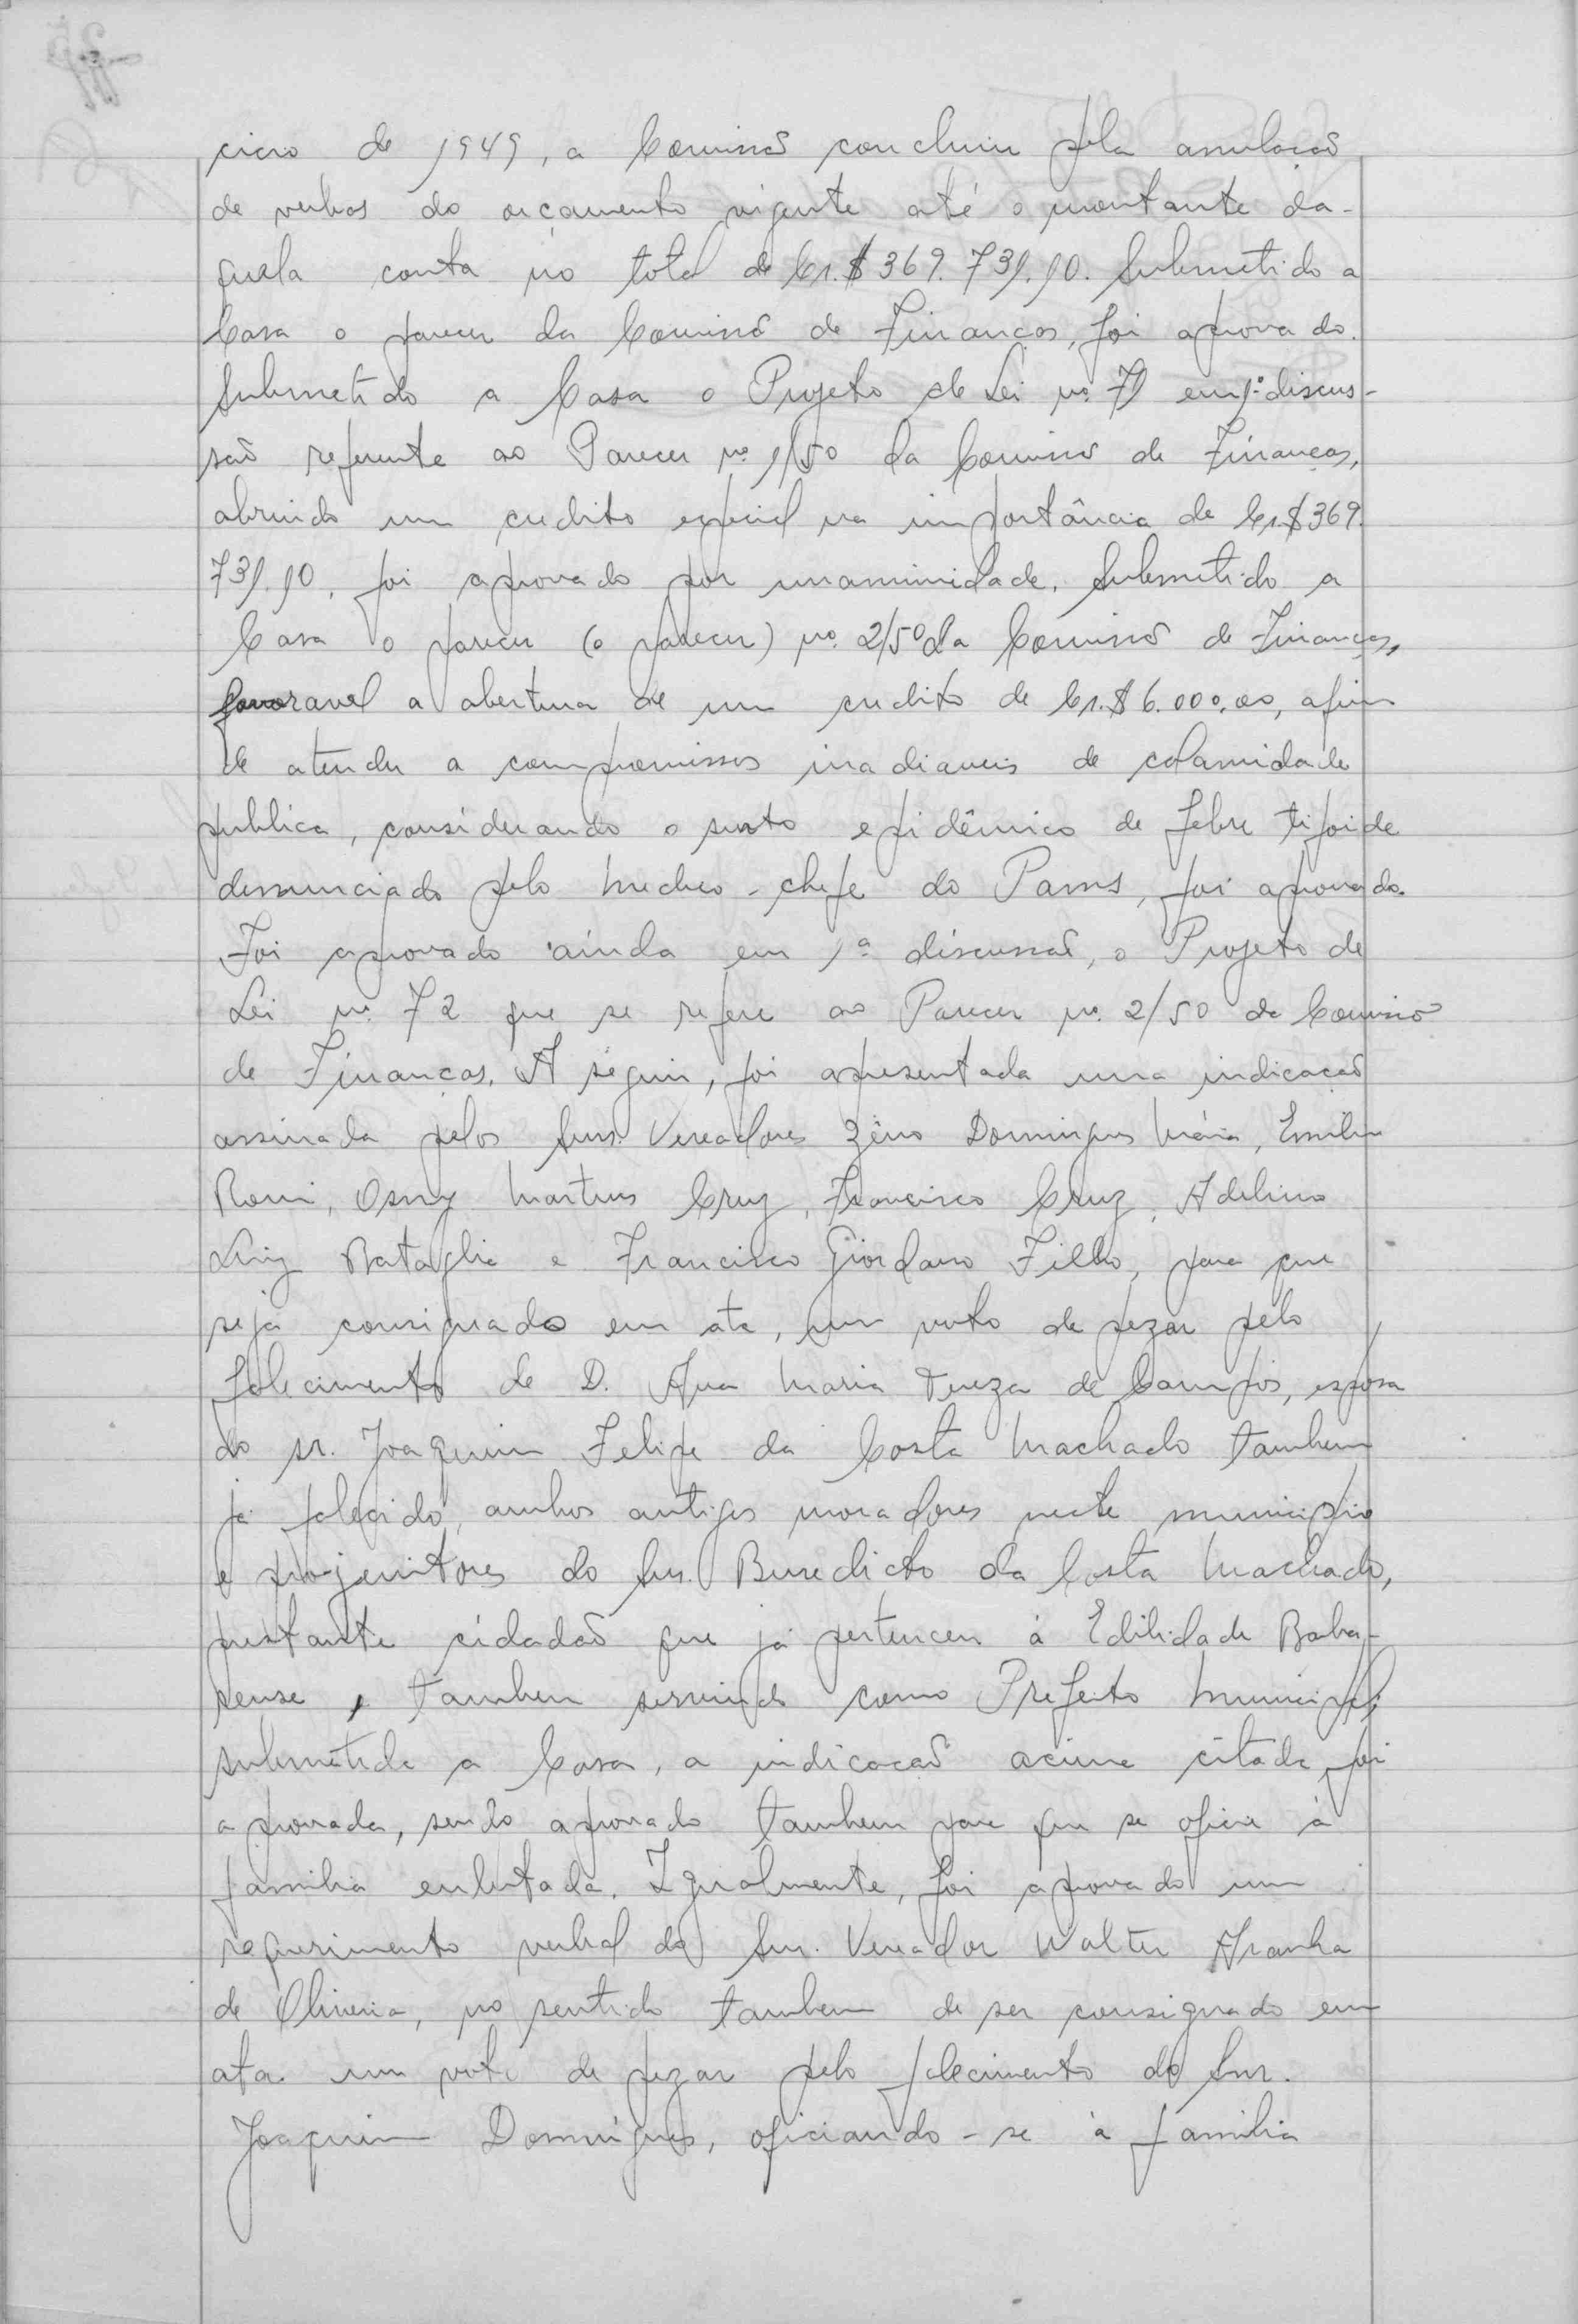 cicio de 1949, a Comissão concluiu pela anulação
de verbas do orçamento vigente até o montante da-
quela conta no total de Cr.$ 369.731.10. Submetido a
Casa o parecer da Comissão de Finanças, foi aprovado.
Submetido a Casa o Projeto de Lei nº. 71 em 1ª discus-
são referente ao Parecer nº 1/50 da Comissão de Finanças,
abrindo um credito especial na importância de Cr.$ 369.
731.10, foi aprovado por unanimidade. Submetido a
Casa o parecer (o parecer) nº. 2/50 da Comissão de Finanças,
favoravel a abertura de um credito de Cr.$ 6.000,00, afim
de atender a compromissos inadiaveis de calamidade
publica, considerando o surto epidêmico de febre tifoide
denunciado pelo Medico-chefe do Pams, foi aprovado.
Foi aprovado ainda em 1ª discussão, o Projeto de
Lei nº. 72 que se refere ao Parecer nº. 2/50 da Comissão
de Finanças. A seguir, foi apresentada uma indicação
assinada pelos Snrs. Vereadores Zêno Domingues Maria, Emilio
Romi, Osny Martins Cruz, Francisco Cruz, Adelino
Luiz Bataglia e Francisco Giordano Filho, para que
seja consignado em ata, um voto de pezar pelo
falecimento de D. Ana Maria Tereza de Campos, esposa
do sr. Joaquim Felipe da Costa Machado tambem
já falecido, ambos antigos moradores neste municipio
e projenitores do Snr. Benedicto da Costa Machado,
prestante cidadão que já pertenceu á Edilidade Barba-
rense, e tambem servindo como Prefeito Municipal;
submetida a Casa, a indicação acima citada foi
aprovada, sendo aprovado tambem para que se oficie à
familia enlutada. Igualmente, foi aprovado um
requerimento verbal do Snr. Vereador Walter Aranha
de Oliveira, no sentido tambem de ser consignado em
ata um voto de pezar pelo falecimento do Snr.
Joaquim Domingues, oficiando-se à familia